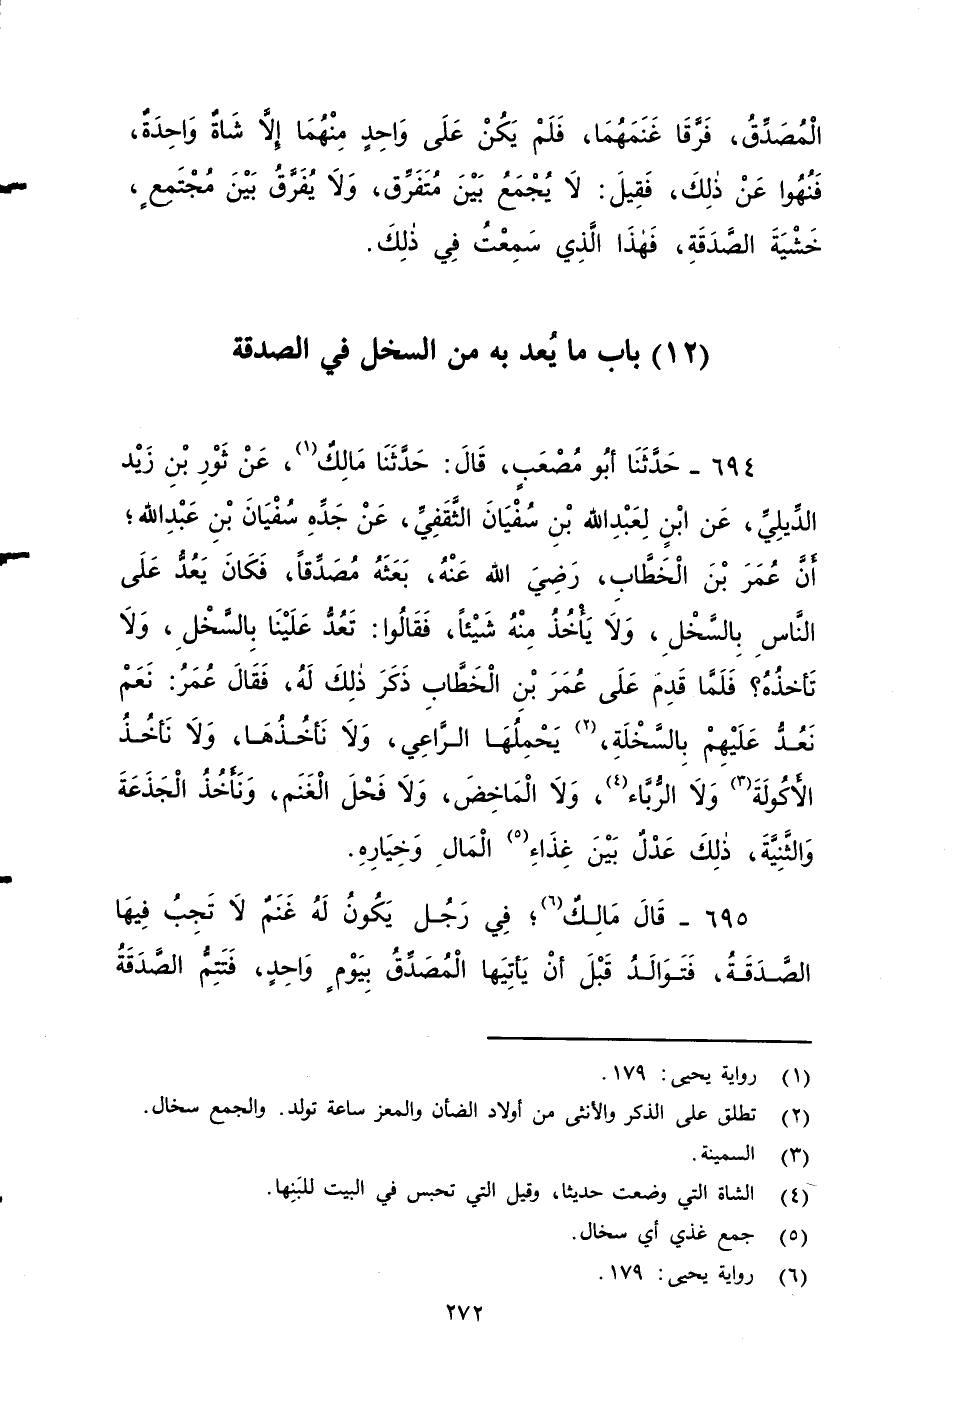 الْمُصَدِّقُ، فَرَّقَا غَنَمَهُمَا، فَلَمْ يَكُنْ عَلَى وَاحِدٍ مِنْهُمَا إِلَّا شَاةٌ وَاحِدَةٌ،
فَنُهُوا عَنْ ذٰلِكَ، فَقِيلَ: لَا يُجْمَعُ بَيْنَ مُتَفَرِّقٍ، وَلَا يُفَرَّقُ بَيْنَ مُجْتَمِعٍ،
خَشْيَةَ الصَّدَقَةِ، فَهٰذَا الَّذِي سَمِعْتُ فِي ذٰلِكَ.
(١٢) باب ما يُعد به من السخل في الصدقة
٦٩٤ - حَدَّثَنَا أبُو مُصْعَبٍ، قَالَ: حَدَّثَنَا مَالِكٌ(١)، عَنْ ثَوْرِ بْنِ زَيْد
الدِّيلِيِّ، عَن ابْنٍ لِعَبْدِالله بْنِ سُفْيَانَ الثَّقَفِيِّ، عَنْ جَدِّهِ سُفْيَانَ بْنِ عَبْدِالله؛
أَنَّ عُمَرَ بْنَ الْخَطَّابِ، رَضِيَ الله عَنْهُ، بَعَثَهُ مُصَدِّقاً، فَكَانَ يَعُدُّ عَلَى
النَّاسِ بِالسَّخْلِ، وَلَا يَأْخُذُ مِنْهُ شَيْئاً، فَقَالُوا: تَعُدُّ عَلَيْنَا بِالسَّخْلِ، وَلَا
تَأخذُهُ؟ فَلَمَّا قَدِمَ عَلَى عُمَرَ بْنِ الْخَطَّابِ ذَكَرَ ذٰلِكَ لَهُ، فَقَالَ عُمَرُ: نَعَمْ
نَعُدُّ عَلَيْهِمْ بِالسَّخْلَةِ،(٢) يَحْمِلُهَا الرَّاعِي، وَلَا نَأخُذُهَا، وَلَا نَأخُذُ
الأَكُولَةَ(٣) وَلَا الرُّبَّاء(٤)، وَلَا الْمَاخِضَ، وَلَا فَحْلَ الْغَنَمِ، وَنَأْخُذُ الْجَذَعَةَ
وَالثَّنِيَّةَ، ذٰلِكَ عَدْلٌ بَيْنَ غِذَاءِ(٥) الْمَالِ وَخِيَارِهِ.
٦٩٥ - قَالَ مَالِكٌ(٦)؛ فِي رَجُلٍ يَكُونُ لَهُ غَنَمٌ لَا تَجِبُ فِيهَا
الصَّدَقَةُ، فَتَوَالَدُ قَبْلَ أنْ يَأتِيَها الْمُصَدِّقُ بِيَوْمٍ وَاحِدٍ، فَتَتِمُّ الصَّدَقَةُ
(١) رواية يحيى: ١٧٩.
(٢) تطلق على الذكر والأنثى من أولاد الضأن والمعز ساعة تولد. والجمع سخال.
(٣) السمينة.
(٤) الشاة التي وضعت حديثا، وقيل التي تحبس في البيت للبَنِها.
(٥) جمع غذي أي سخال.
(٦) رواية يحيى: ١٧٩.
٢٧٢